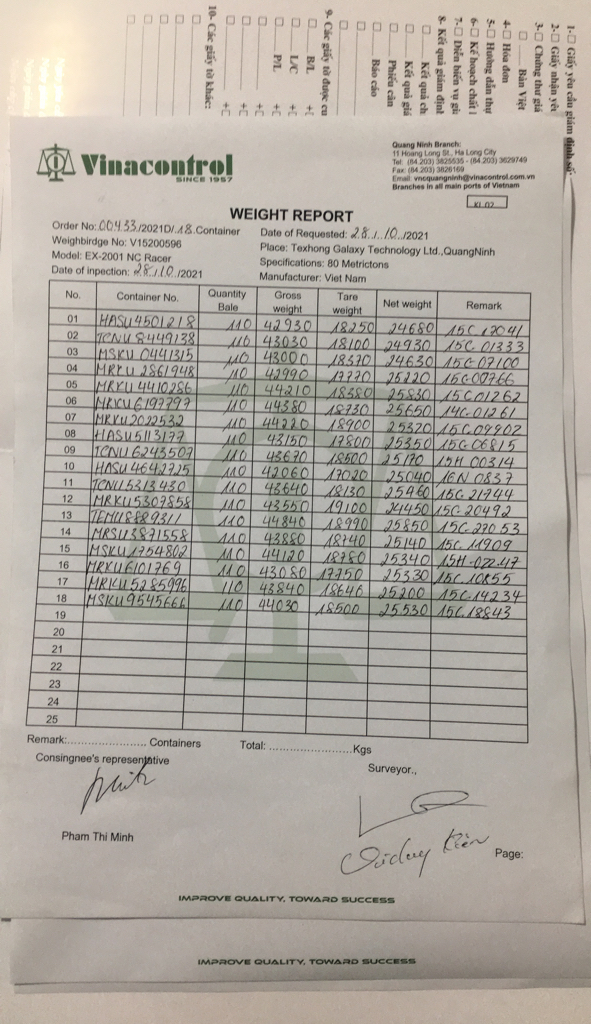 1-☐ Giấy yêu cầu giám định số:
2-☐ Giấy nhận yêu
3-☐ Chứng thư giá
☐ Bản Việt
4-☐ Hóa đơn
5-☐ Hướng dẫn thự
6-☐ Kế hoạch chất l
7-☐ Diễn biến vụ gi
8- Kết quả giám định
☐ Kết quả ch
☐ Kết quả giá
☐ Phiếu cân
☐ Báo cáo
9- Các giấy tờ được cu
☐ B/L
☐ L/C
☐ P/L
10- Các giấy tờ khác:
Vinacontrol
SINCE 1957
Quang Ninh Branch:
11 Hoang Long St., Ha Long City
Tel: (84.203) 3825535 - (84.203) 3629749
Fax: (84.203) 3826169
Email: vncquangninh@vinacontrol.com.vn
Branches in all main ports of Vietnam
KL.02
WEIGHT REPORT
Order No: 00433/2021D/.18.Container
Date of Requested: 28./.10../2021
Weighbirdge No: V15200596
Place: Texhong Galaxy Technology Ltd.,QuangNinh
Model: EX-2001 NC Racer
Specifications: 80 Metrictons
Date of inpection: 28./10./2021
Manufacturer: Viet Nam
No. Container No. Quantity Bale Gross weight Tare weight Net weight Remark
01 HASU4501218 110 42930 18250 24680 15C 17041
02 TCNU8449138 110 43030 18100 24930 15C 01333
03 MSKU0441315 110 43000 18370 24630 15C-07100
04 MRKU2861948 110 42990 17770 25220 15C00766
05 MRKU4410286 110 44210 18380 25830 15C01262
06 MRKU6197797 110 44380 18730 25650 14C-01261
07 MRKU2022532 110 44220 18900 25320 15C09902
08 HASU5113177 110 43150 17800 25350 15C-06815
09 TCNU6243507 110 43670 18500 25170 15H 00314
10 HASU4642725 110 42060 17020 25040 16N 0837
11 TCNU5313430 110 43640 18130 25460 15C-21744
12 MRKU5307858 110 43550 19100 24450 15C-20492
13 TEMU8889311 110 44840 18990 25850 15C.27053
14 MRSU3871558 110 43880 18740 25140 15C 11909
15 MSKU1754802 110 44120 18780 25340 15H-022.47
16 MRKU6101769 110 43080 17750 25330 15C-10855
17 MRKU5285996 110 43840 18640 25200 15C-14234
18 MSKU9545666 110 44030 18500 25530 15C.18843
19
20
21
22
23
24
25
Remark:........................ Containers Total: ..........................Kgs
Consingnee's representative Surveyor.,
Pham Thi Minh
Page:
IMPROVE QUALITY, TOWARD SUCCESS
IMPROVE QUALITY, TOWARD SUCCESS